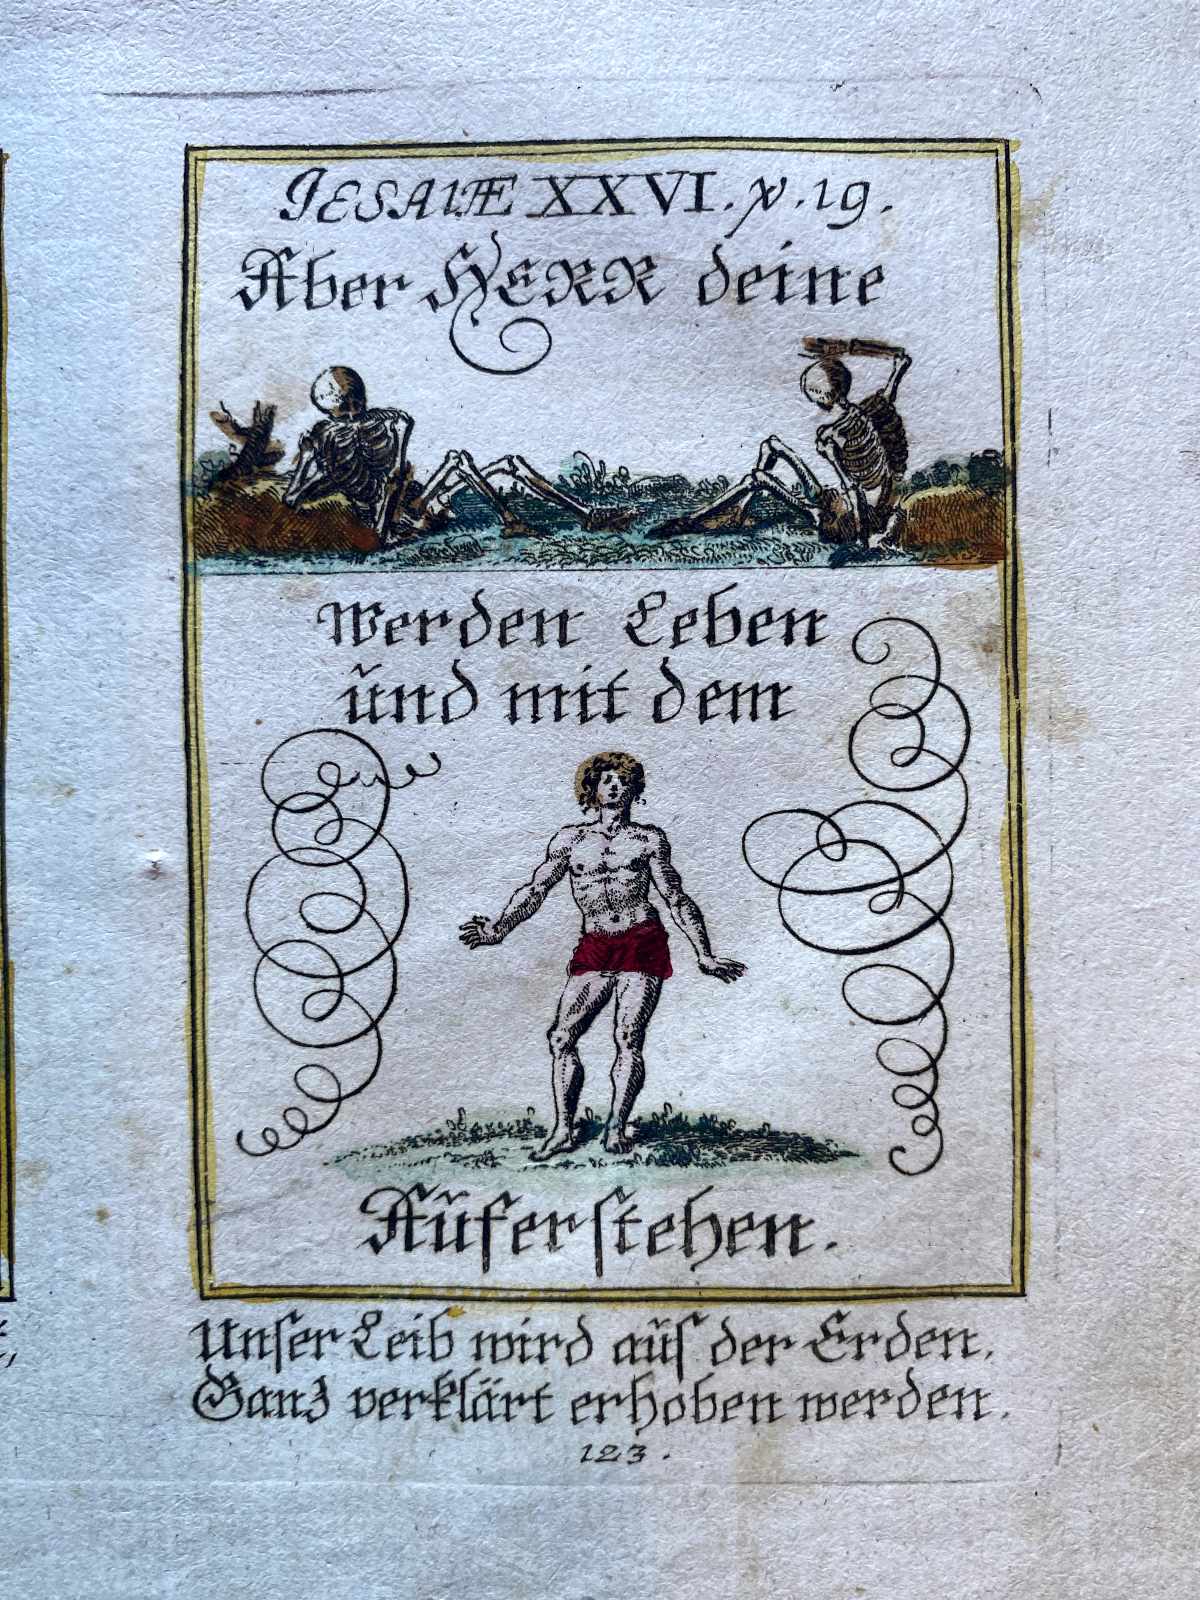 JESAIÆ XXVI. v. 19.
Aber HERR deine
Werden Leben
ŭnd mit dem
Aŭferstehen.
Unser Leib wird aŭs der Erden,
Ganz verklärt erhoben werden.
123.